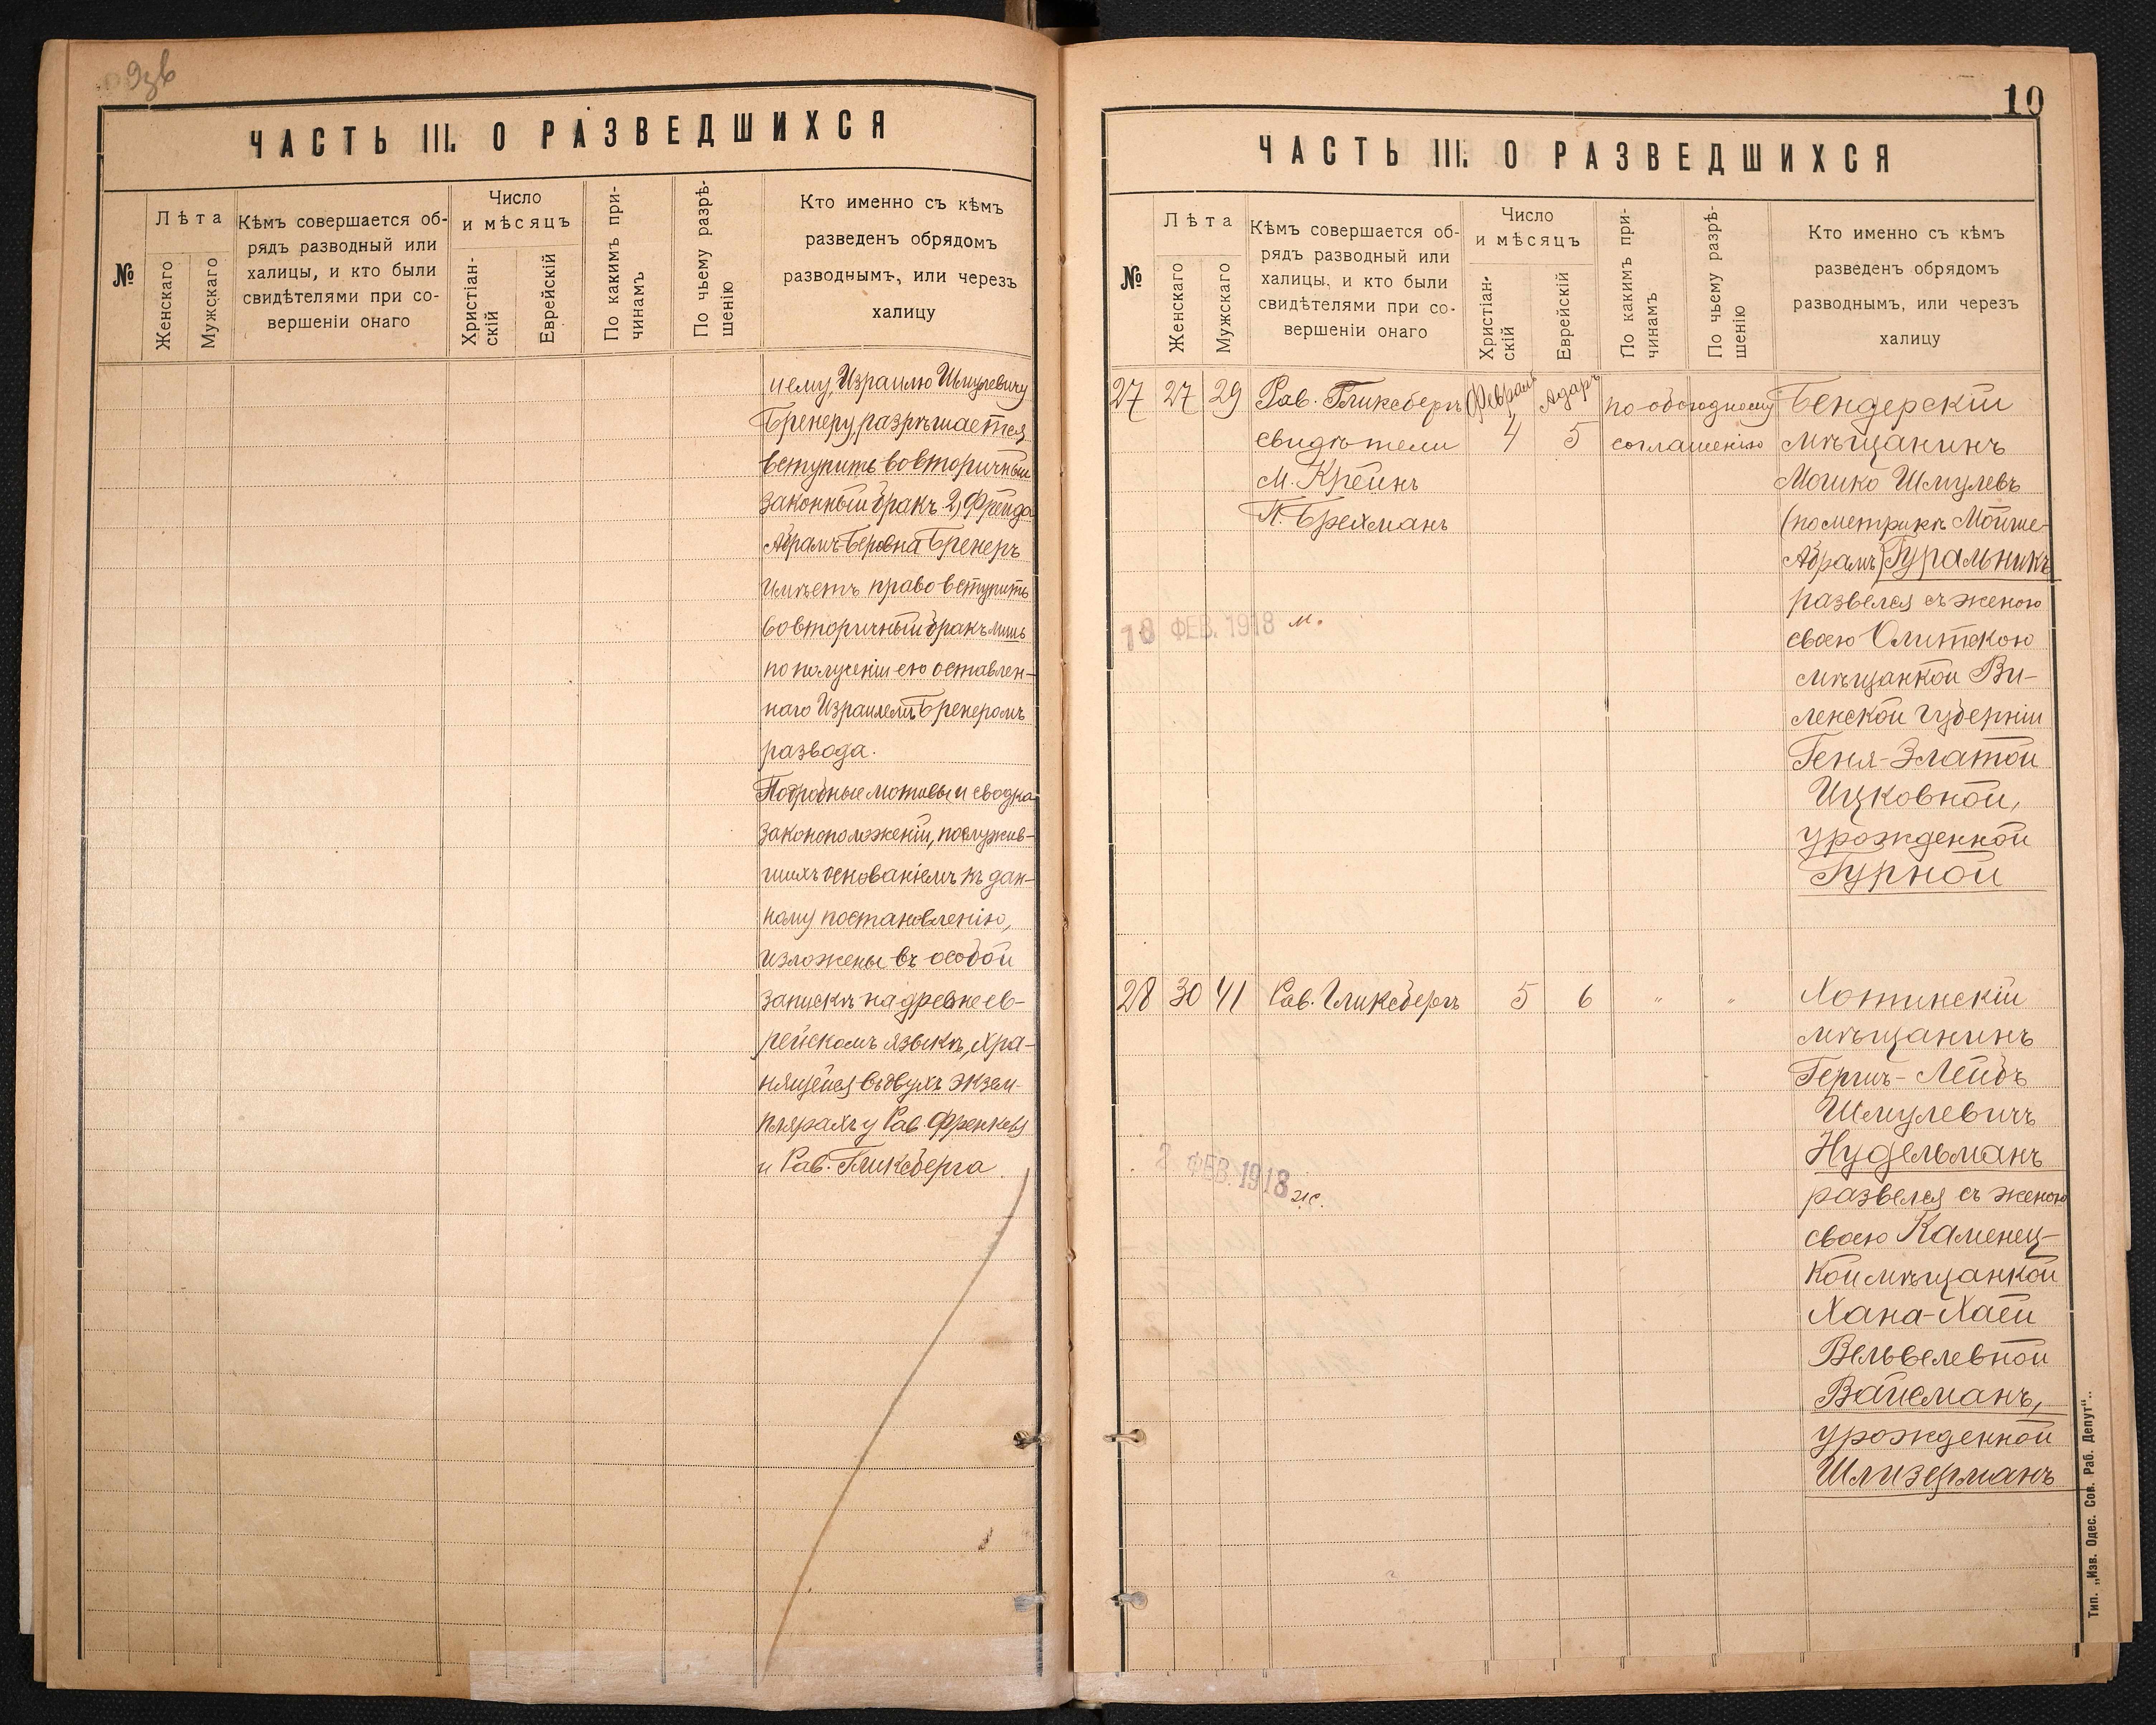 ЧАСТЬ III. О РАЗВЕДШИХСЯ
№
Лѣта
Женскаго
Мужскаго
Кѣмъ совершается об-
рядъ разводный или
халицы, и кто были
свидѣтелями при со-
вершеніи онаго
Число
и мѣсяцъ
Христіан-
скій
Еврейскій
По какимъ при-
чинамъ
По чьему разрѣ-
шенію
Кто именно съ кѣмъ
разведенъ обрядомъ
разводнымъ, или черезъ
халицу
нему, Израилю Шмулевичу
Бренеру, разрѣшается
вступить во вторичный
законный бракъ 2, Фрейда
Абрамъ-Беровна Бренеръ
имѣетъ право вступить
во вторичный бракъ лишь
по полученіи ею оставлен-
наго Израилемъ Бренеромъ
развода.
Подробные мотивы и сводка
законоположеній, послужив-
шихъ основаніемъ къ дан-
ному постановленію,
изложены въ особой
запискѣ на древнеев-
рейскомъ языкѣ, хра-
нящейся въ двухъ экзем-
плярахъ у Рав. Френкеля
и Рав. Гликсберга
10
ЧАСТЬ III. О РАЗВЕДШИХСЯ
№
Лѣта
Женскаго
Мужскаго
Кѣмъ совершается об-
рядъ разводный или
халицы, и кто были
свидѣтелями при со-
вершеніи онаго
Число
и мѣсяцъ
Христіан-
скій
Еврейскій
По какимъ при-
чинамъ
По чьему разрѣ-
шенію
Кто именно съ кѣмъ
разведенъ обрядомъ
разводнымъ, или черезъ
халицу
27 27 29 Рав. Гликсбергъ Февраль Адаръ по обоюдному Бендерскій
свидѣтели 4 5 соглашенію мѣщанинъ
М. Крейнъ Мошко Шмулевъ
П. Брехманъ (по метрикѣ Мойше-
Абрамъ) Гуральникъ
развелся съ женою
18 ФЕВ. 1918 м.
своею Олитскою
мѣщанкой Ви-
ленской губерніи
Геня-Златой
Ицковной,
урожденной
Гурной
28 30 41 Рав. Гликсбергъ 5 6 " " Хотинскій
мѣщанинъ
Гершъ-Лейбъ
Шмулевичъ
Нудельманъ
2 ФЕВ. 1918 ж.
развелся съ женою
своею Каменец-
кой мѣщанкой
Хана-Хаей
Вельвелевной
Вайсманъ,
урожденной
Шлизерманъ
Тип. „Изв. Одес. Сов. Раб. Депут“.